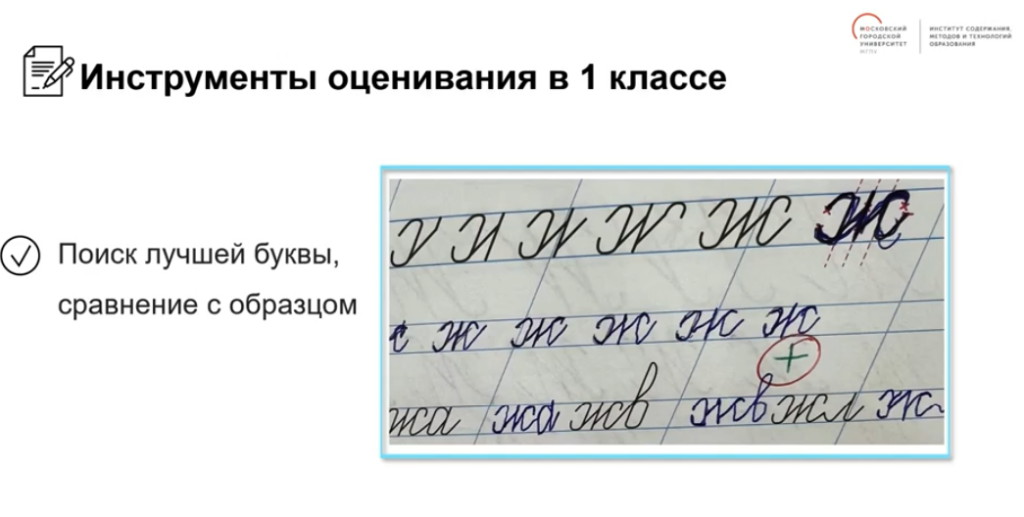 МОСКОВСКИЙ
ГОРОДСКОЙ
УНИВЕРСИТЕТ
ИНСТИТУТ СОДЕРЖАНИЯ,
МЕТОДОВ И ТЕХНОЛОГИЙ
ОБРАЗОВАНИЯ
Инструменты оценивания в 1 классе
Поиск лучшей буквы,
сравнение с образцом
ж ж
ж ж ж ж ж
+
жа жа жв жв жл ж